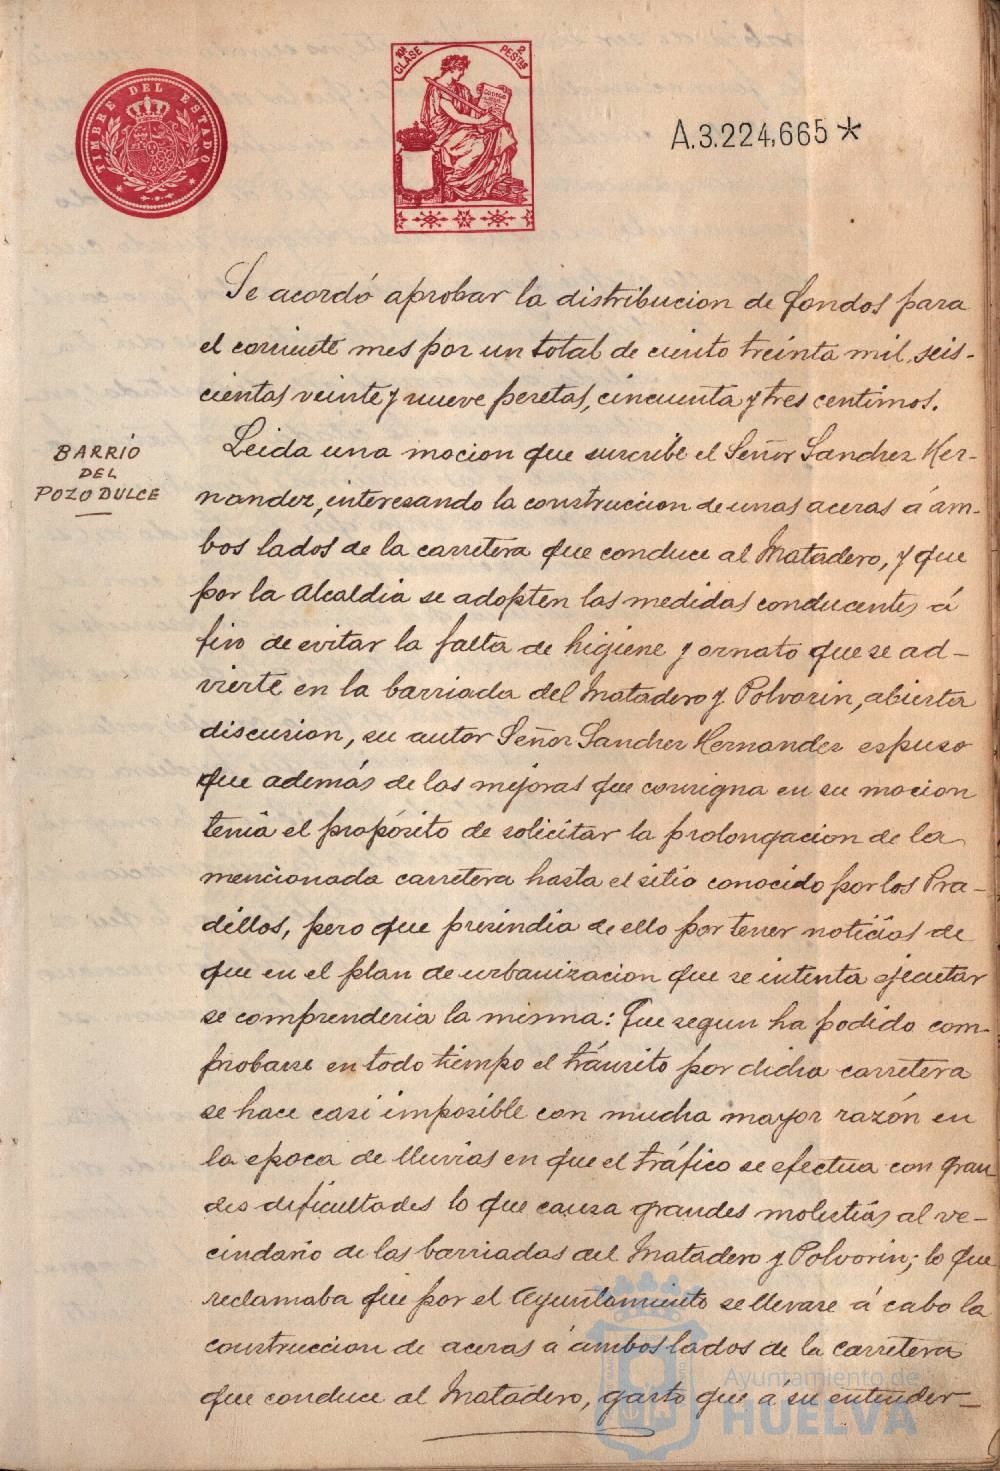 TIMBRE DEL ESTADO
10ª CLASE
2 PESTAS
CODIGO
A.3.224,665*
Se acordó aprobar la distribucion de fondos para
el corriente mes por un total de ciento treinta mil seis-
cientas veinte y nueve pesetas, cincuenta y tres centimos.
BARRIO
DEL
POZO DULCE
Leida una mocion que suscribe el Señor Sanchez Her-
nandez, interesando la construccion de unas aceras á am-
bos lados de la carretera que conduce al Matadero, y que
por la Alcaldia se adopten las medidas conducentes á
fin de evitar la falta de higiene y ornato que se ad-
vierte en la barriada del Matadero y Polvorin, abierta
discusion, su autor Señor Sanchez Hernandez espuso
que además de las mejoras que consigna en su mocion
tenia el propósito de solicitar la prolongacion de la
mencionada carretera hasta el sitio conocido por los Pra-
dillos, pero que presindia de ello por tener noticias de
que en el plan de urbanizacion que se intenta ejecutar
se comprenderia la misma: Que segun ha podido com-
probarse en todo tiempo el tránsito por dicha carretera
se hace casi imposible con mucha mayor razón en
la epoca de lluvias en que el tráfico se efectua con gran
des dificultades lo que causa grandes molestias al ve-
cindario de las barriadas del Matadero y Polvorin; lo que
reclamaba que por el Ayuntamiento se llevase á cabo la
construccion de aceras á ambos lados de la carretera
que conduce al Matadero, gasto que á su entender-
Ayuntamiento de
HUELVA